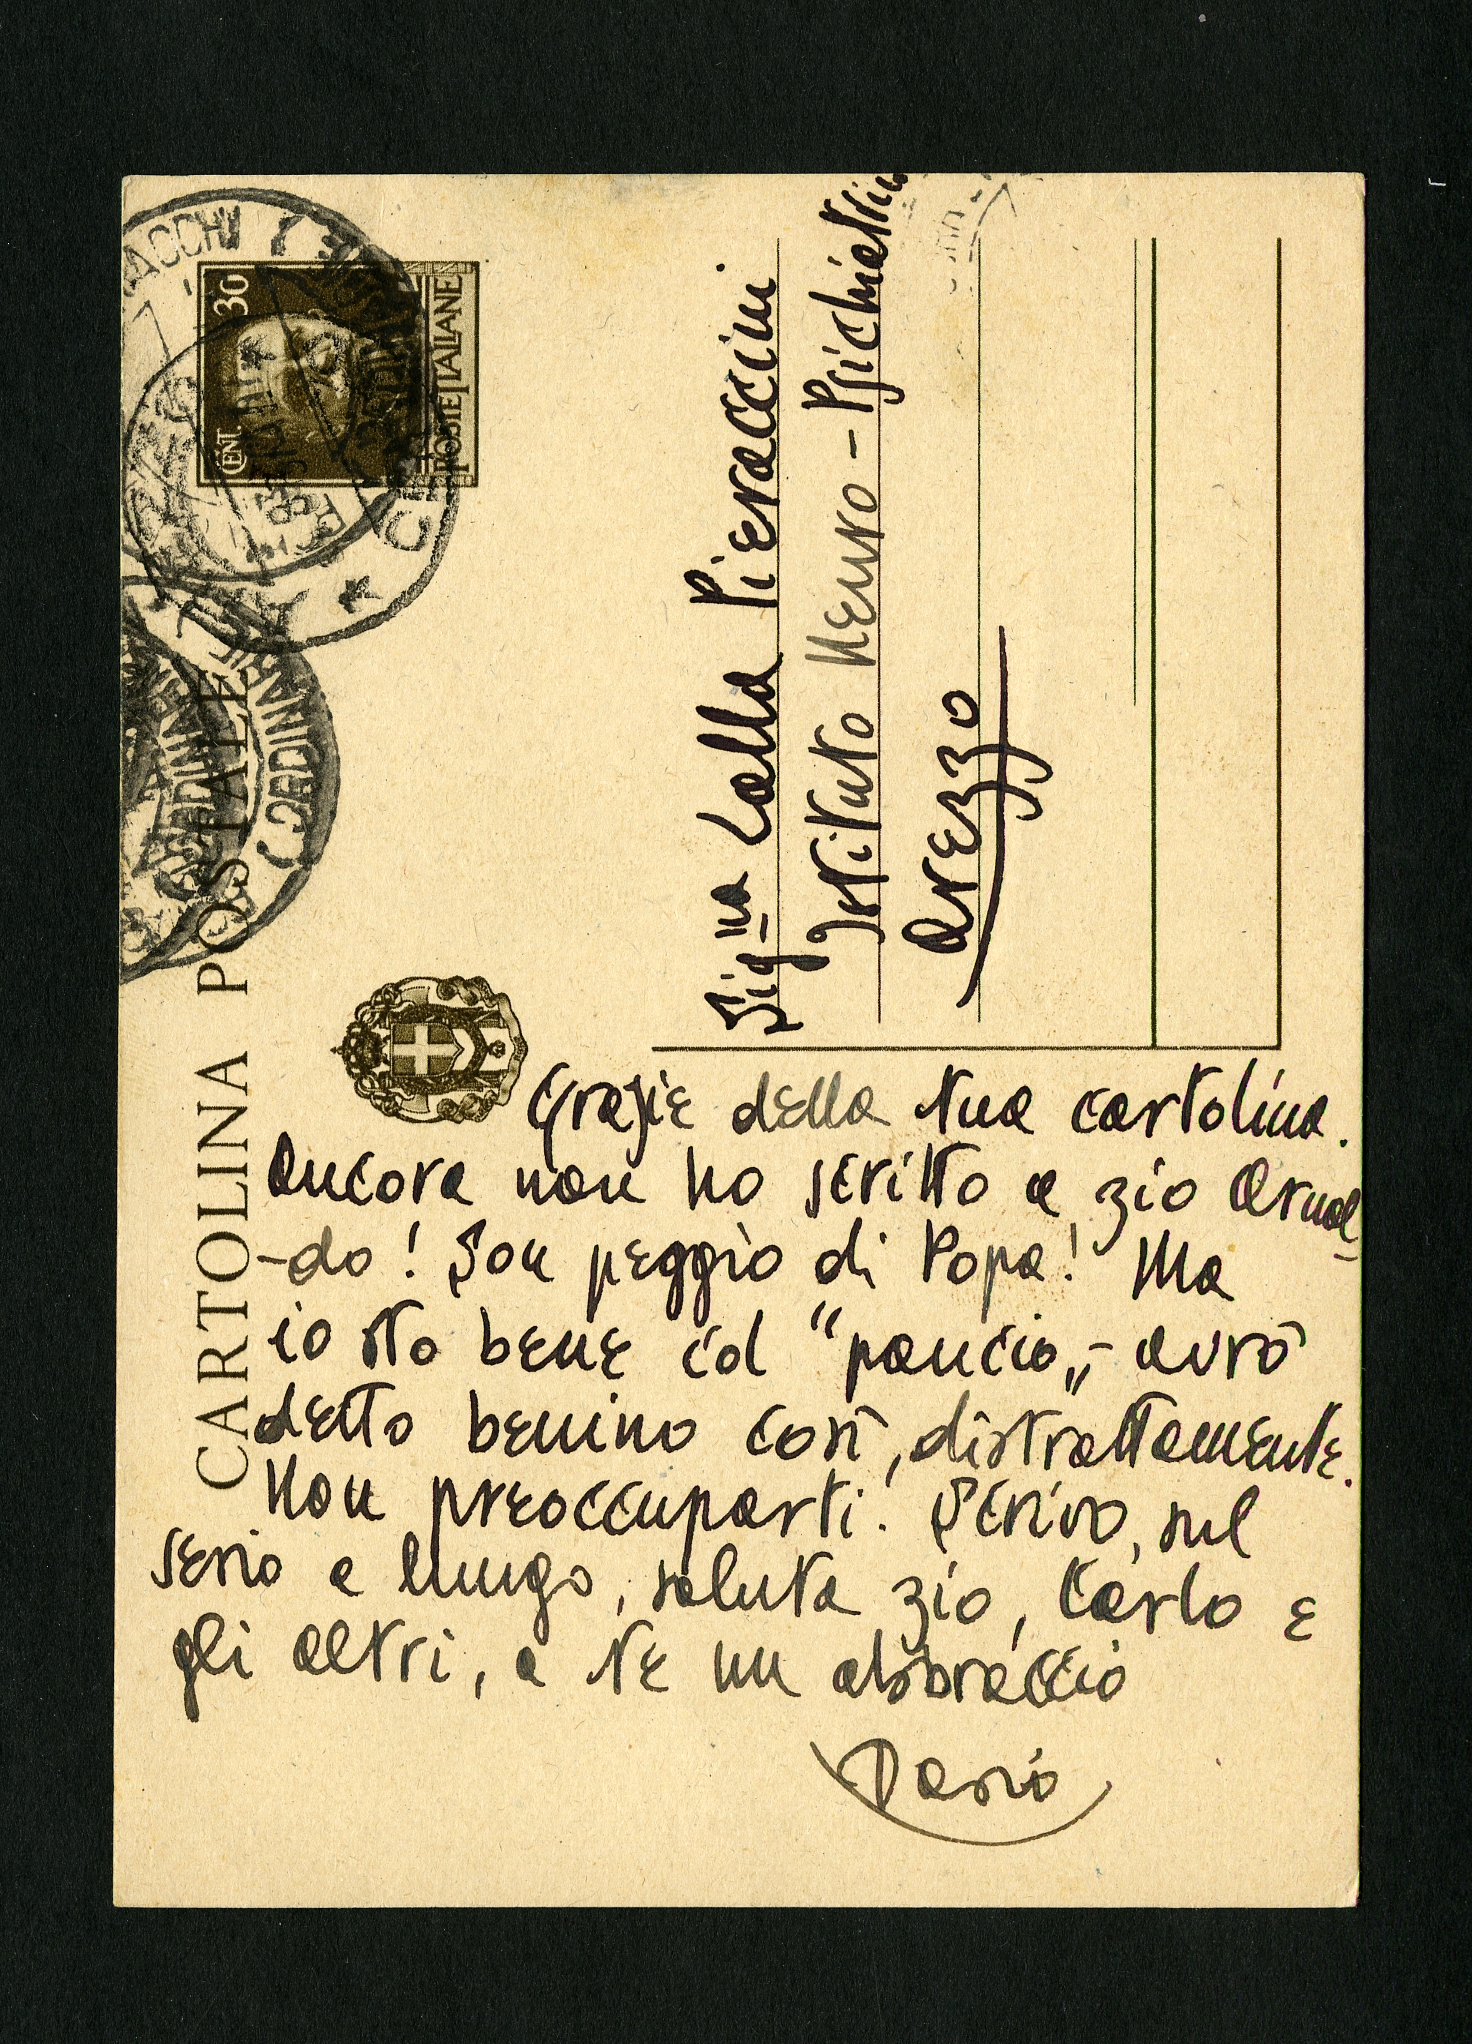 CARTOLINA POSTALE
CENT. 30
POSTE ITALIANE
Sig.na Lalla Pieraccini
Istituto Neuro-Psichiatrico
Arezzo
Grazie della tua cartolina.
Ancora non ho scritto a zio Arnal-
-do! Son peggio di Papa! Ma
io sto bene col "pancio„ - avrò
detto benino così, distrattamente.
Non preoccuparti! Scrivo, sul
serio a lungo, saluta zio, Carlo e
gli altri, a te un abbraccio
Dario